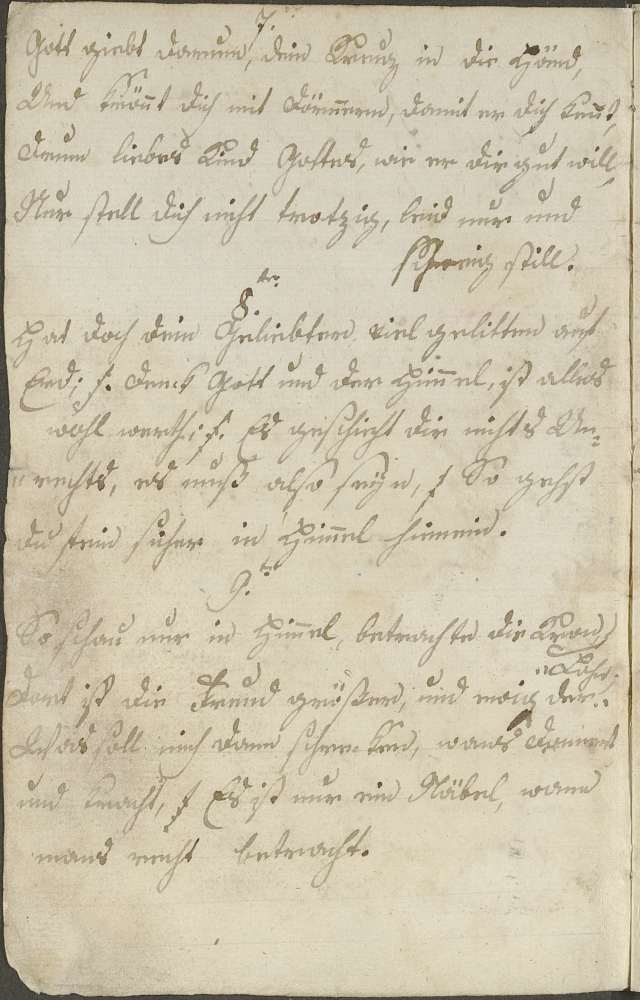 7.
Gott giebt darum, dein Kreuz in die Händ,
Und krönnt dich mit Dörnern, damit er dich kennt,
Drum liebes Kind Gottes, wie er dir gut will,
Nur stell dich nicht trotzig, leid nur und
schweig still.
8.te
Hat doch dein Geliebter viel gelitten auf
Erd; f. denck Gott und der Himmel, ist alles
wohl werth; f. Es geschieht dir nichts Un=
=rechts, es muß also seyn, f So gehst
du fein sicher in Himmel hienein.
9.te
So schau nur in Himmel, betrachte die Kron,
Dort ist die Freud größer, und ewig der
Lohn;
Was soll mich dann schrecken, wans Donnert
und kracht, f Es ist nur ein Näbel, wann
mans recht betracht.